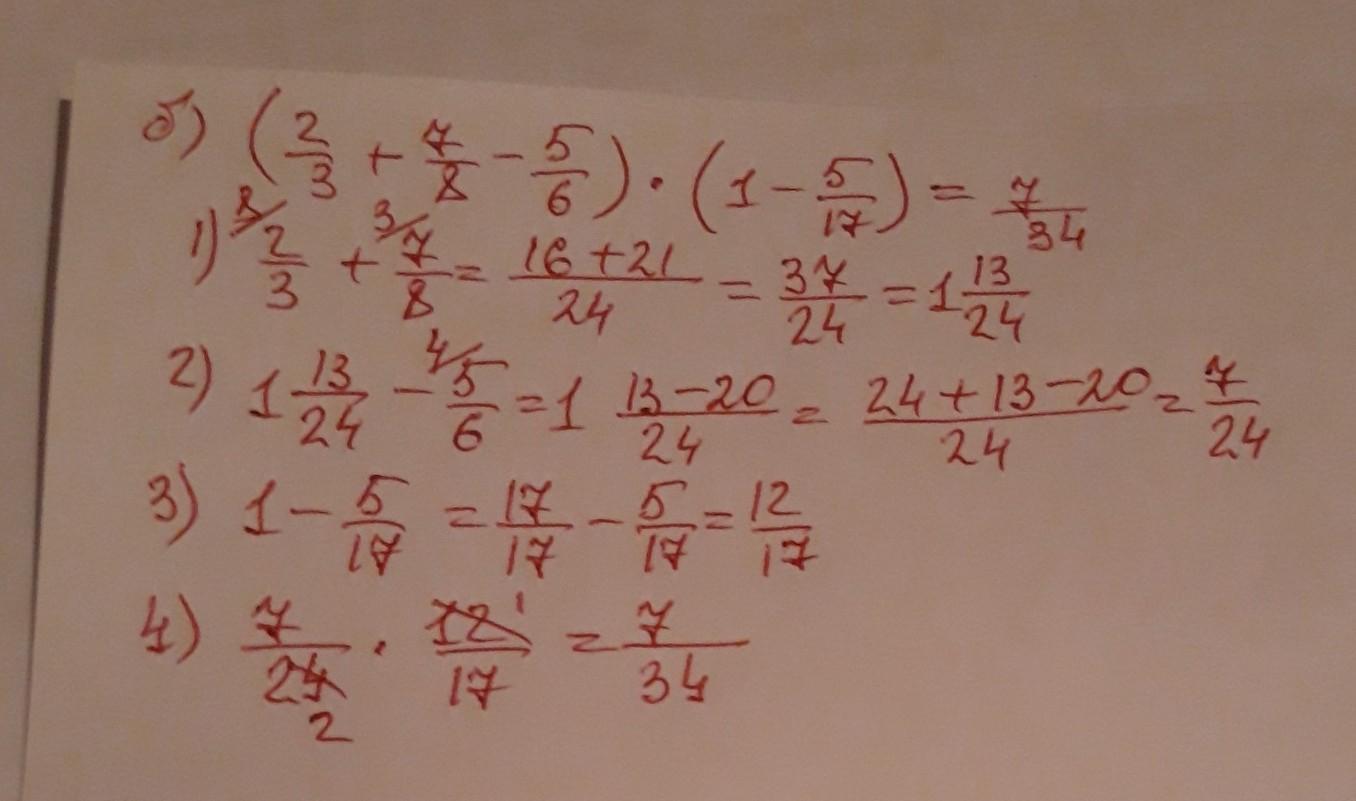 б) (2/3 + 7/8 - 5/6) · (1 - 5/17) = 7/34
1) 8/ 2/3 + 3/ 7/8 = 16+21/24 = 37/24 = 1 13/24
2) 1 13/24 - 4/ 5/6 = 1 13-20/24 = 24+13-20/24 = 7/24
3) 1 - 5/17 = 17/17 - 5/17 = 12/17
4) 7/24 2 · 12/17 1 = 7/34